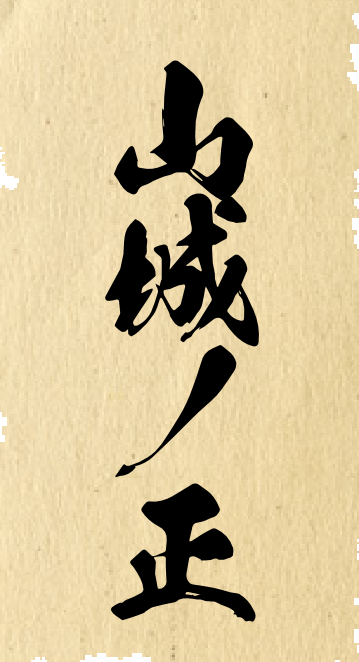 山城ノ正